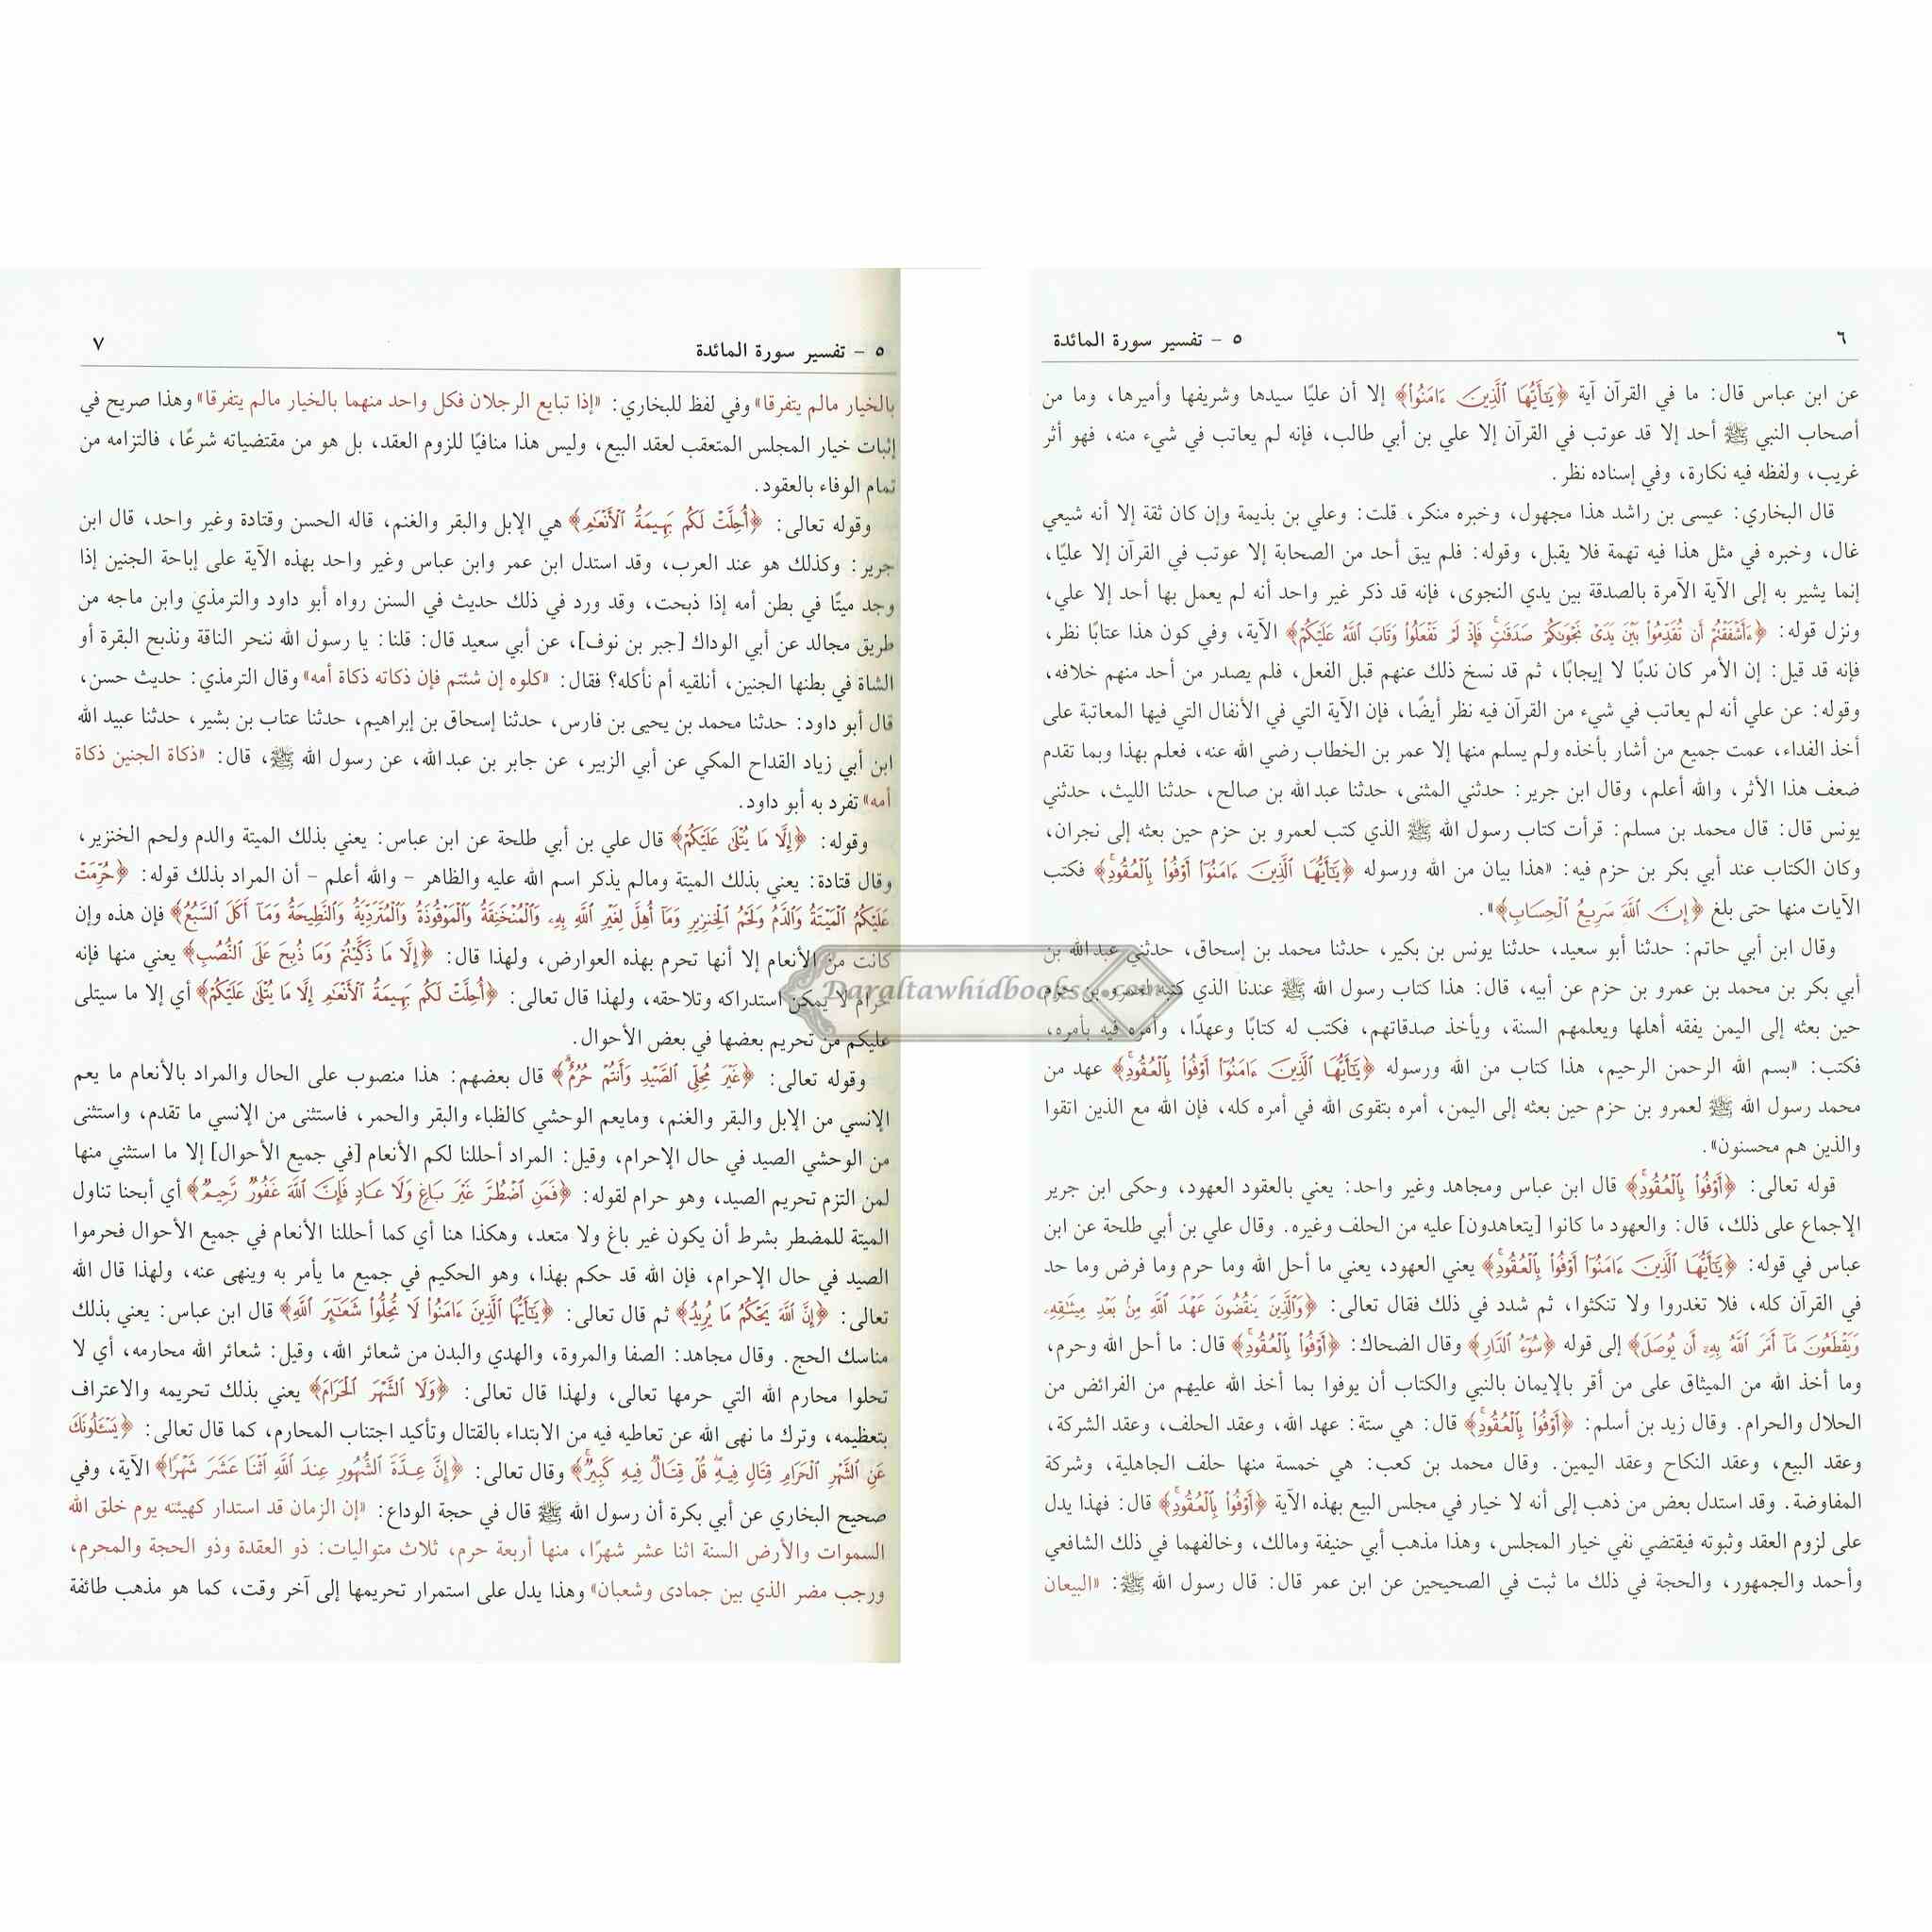 ٦
٥ - تفسير سورة المائدة
عن ابن عباس قال: ما في القرآن آية ﴿يَٰٓأَيُّهَا ٱلَّذِينَ ءَامَنُوا۟﴾ إلا أن عليًا سيدها وشريفها وأميرها، وما من
أصحاب النبي ﷺ أحد إلا قد عوتب في القرآن إلا علي بن أبي طالب، فإنه لم يعاتب في شيء منه، فهو أثر
غريب، ولفظه فيه نكارة، وفي إسناده نظر.
قال البخاري: عيسى بن راشد هذا مجهول، وخبره منكر، قلت: وعلي بن بذيمة وإن كان ثقة إلا أنه شيعي
غال، وخبره في مثل هذا فيه تهمة فلا يقبل، وقوله: فلم يبق أحد من الصحابة إلا عوتب في القرآن إلا عليًا،
إنما يشير به إلى الآية الآمرة بالصدقة بين يدي النجوى، فإنه قد ذكر غير واحد أنه لم يعمل بها أحد إلا علي،
ونزل قوله: ﴿ءَأَشْفَقْتُمْ أَن تُقَدِّمُوا۟ بَيْنَ يَدَىْ نَجْوَىٰكُمْ صَدَقَٰتٍ ۚ فَإِذْ لَمْ تَفْعَلُوا۟ وَتَابَ ٱللَّهُ عَلَيْكُمْ﴾ الآية، وفي كون هذا عتابًا نظر،
فإنه قد قيل: إن الأمر كان ندبًا لا إيجابًا، ثم قد نسخ ذلك عنهم قبل الفعل، فلم يصدر من أحد منهم خلافه،
وقوله: عن علي أنه لم يعاتب في شيء من القرآن فيه نظر أيضًا، فإن الآية التي في الأنفال التي فيها المعاتبة على
أخذ الفداء، عمت جميع من أشار بأخذه ولم يسلم منها إلا عمر بن الخطاب رضي الله عنه، فعلم بهذا وبما تقدم
ضعف هذا الأثر، والله أعلم، وقال ابن جرير: حدثني المثنى، حدثنا عبدالله بن صالح، حدثنا الليث، حدثني
يونس قال: قال محمد بن مسلم: قرأت كتاب رسول الله ﷺ الذي كتب لعمرو بن حزم حين بعثه إلى نجران،
وكان الكتاب عند أبي بكر بن حزم فيه: «هذا بيان من الله ورسوله ﴿يَٰٓأَيُّهَا ٱلَّذِينَ ءَامَنُوٓا۟ أَوْفُوا۟ بِٱلْعُقُودِ ۚ﴾ فكتب
الآيات منها حتى بلغ ﴿إِنَّ ٱللَّهَ سَرِيعُ ٱلْحِسَابِ﴾».
وقال ابن أبي حاتم: حدثنا أبو سعيد، حدثنا يونس بن بكير، حدثنا محمد بن إسحاق، حدثني عبدالله بن
أبي بكر بن محمد بن عمرو بن حزم عن أبيه، قال: هذا كتاب رسول الله ﷺ عندنا الذي كتبه لعمرو بن حزم
حين بعثه إلى اليمن يفقه أهلها ويعلمهم السنة، ويأخذ صدقاتهم، فكتب له كتابًا وعهدًا، وأمره فيه بأمره،
فكتب: «بسم الله الرحمن الرحيم، هذا كتاب من الله ورسوله ﴿يَٰٓأَيُّهَا ٱلَّذِينَ ءَامَنُوٓا۟ أَوْفُوا۟ بِٱلْعُقُودِ ۚ﴾ عهد من
محمد رسول الله ﷺ لعمرو بن حزم حين بعثه إلى اليمن، أمره بتقوى الله في أمره كله، فإن الله مع الذين اتقوا
والذين هم محسنون».
قوله تعالى: ﴿أَوْفُوا۟ بِٱلْعُقُودِ ۚ﴾ قال ابن عباس ومجاهد وغير واحد: يعني بالعقود العهود، وحكى ابن جرير
الإجماع على ذلك، قال: والعهود ما كانوا [يتعاهدون] عليه من الحلف وغيره. وقال علي بن أبي طلحة عن ابن
عباس في قوله: ﴿يَٰٓأَيُّهَا ٱلَّذِينَ ءَامَنُوٓا۟ أَوْفُوا۟ بِٱلْعُقُودِ ۚ﴾ يعني العهود، يعني ما أحل الله وما حرم وما فرض وما حد
في القرآن كله، فلا تغدروا ولا تنكثوا، ثم شدد في ذلك فقال تعالى: ﴿وَٱلَّذِينَ يَنقُضُونَ عَهْدَ ٱللَّهِ مِنۢ بَعْدِ مِيثَٰقِهِۦ
وَيَقْطَعُونَ مَآ أَمَرَ ٱللَّهُ بِهِۦٓ أَن يُوصَلَ﴾ إلى قوله ﴿سُوٓءُ ٱلدَّارِ﴾ وقال الضحاك: ﴿أَوْفُوا۟ بِٱلْعُقُودِ ۚ﴾ قال: ما أحل الله وحرم،
وما أخذ الله من الميثاق على من أقر بالإيمان بالنبي والكتاب أن يوفوا بما أخذ الله عليهم من الفرائض من
الحلال والحرام. وقال زيد بن أسلم: ﴿أَوْفُوا۟ بِٱلْعُقُودِ ۚ﴾ قال: هي ستة: عهد الله، وعقد الحلف، وعقد الشركة،
وعقد البيع، وعقد النكاح وعقد اليمين. وقال محمد بن كعب: هي خمسة منها حلف الجاهلية، وشركة
المفاوضة. وقد استدل بعض من ذهب إلى أنه لا خيار في مجلس البيع بهذه الآية ﴿أَوْفُوا۟ بِٱلْعُقُودِ ۚ﴾ قال: فهذا يدل
على لزوم العقد وثبوته فيقتضي نفي خيار المجلس، وهذا مذهب أبي حنيفة ومالك، وخالفهما في ذلك الشافعي
وأحمد والجمهور، والحجة في ذلك ما ثبت في الصحيحين عن ابن عمر قال: قال رسول الله ﷺ: «البيعان
٥ - تفسير سورة المائدة
٧
بالخيار مالم يتفرقا» وفي لفظ للبخاري: «إذا تبايع الرجلان فكل واحد منهما بالخيار مالم يتفرقا» وهذا صريح في
إثبات خيار المجلس المتعقب لعقد البيع، وليس هذا منافيًا للزوم العقد، بل هو من مقتضياته شرعًا، فالتزامه من
تمام الوفاء بالعقود.
وقوله تعالى: ﴿أُحِلَّتْ لَكُم بَهِيمَةُ ٱلْأَنْعَٰمِ﴾ هي الإبل والبقر والغنم، قاله الحسن وقتادة وغير واحد، قال ابن
جرير: وكذلك هو عند العرب، وقد استدل ابن عمر وابن عباس وغير واحد بهذه الآية على إباحة الجنين إذا
وجد ميتًا في بطن أمه إذا ذبحت، وقد ورد في ذلك حديث في السنن رواه أبو داود والترمذي وابن ماجه من
طريق مجالد عن أبي الوداك [جبر بن نوف]، عن أبي سعيد قال: قلنا: يا رسول الله ننحر الناقة ونذبح البقرة أو
الشاة في بطنها الجنين، أنلقيه أم نأكله؟ فقال: «كلوه إن شئتم فإن ذكاته ذكاة أمه» وقال الترمذي: حديث حسن،
قال أبو داود: حدثنا محمد بن يحيى بن فارس، حدثنا إسحاق بن إبراهيم، حدثنا عتاب بن بشير، حدثنا عبيد الله
ابن أبي زياد القداح المكي عن أبي الزبير، عن جابر بن عبدالله، عن رسول الله ﷺ، قال: «ذكاة الجنين ذكاة
أمه» تفرد به أبو داود.
وقوله: ﴿إِلَّا مَا يُتْلَىٰ عَلَيْكُمْ﴾ قال علي بن أبي طلحة عن ابن عباس: يعني بذلك الميتة والدم ولحم الخنزير،
وقال قتادة: يعني بذلك الميتة ومالم يذكر اسم الله عليه والظاهر - والله أعلم - أن المراد بذلك قوله: ﴿حُرِّمَتْ
عَلَيْكُمُ ٱلْمَيْتَةُ وَٱلدَّمُ وَلَحْمُ ٱلْخِنزِيرِ وَمَآ أُهِلَّ لِغَيْرِ ٱللَّهِ بِهِۦ وَٱلْمُنْخَنِقَةُ وَٱلْمَوْقُوذَةُ وَٱلْمُتَرَدِّيَةُ وَٱلنَّطِيحَةُ وَمَآ أَكَلَ ٱلسَّبُعُ﴾ فإن هذه وإن
كانت من الأنعام إلا أنها تحرم بهذه العوارض، ولهذا قال: ﴿إِلَّا مَا ذَكَّيْتُمْ وَمَا ذُبِحَ عَلَى ٱلنُّصُبِ﴾ يعني منها فإنه
حرام لا يمكن استدراكه وتلاحقه، ولهذا قال تعالى: ﴿أُحِلَّتْ لَكُم بَهِيمَةُ ٱلْأَنْعَٰمِ إِلَّا مَا يُتْلَىٰ عَلَيْكُمْ﴾ أي إلا ما سيتلى
عليكم من تحريم بعضها في بعض الأحوال.
وقوله تعالى: ﴿غَيْرَ مُحِلِّى ٱلصَّيْدِ وَأَنتُمْ حُرُمٌ ۗ﴾ قال بعضهم: هذا منصوب على الحال والمراد بالأنعام ما يعم
الإنسي من الإبل والبقر والغنم، ومايعم الوحشي كالظباء والبقر والحمر، فاستثنى من الإنسي ما تقدم، واستثنى
من الوحشي الصيد في حال الإحرام، وقيل: المراد أحللنا لكم الأنعام [في جميع الأحوال] إلا ما استثني منها
لمن التزم تحريم الصيد، وهو حرام لقوله: ﴿فَمَنِ ٱضْطُرَّ غَيْرَ بَاغٍ وَلَا عَادٍ فَإِنَّ ٱللَّهَ غَفُورٌ رَّحِيمٌ﴾ أي أبحنا تناول
الميتة للمضطر بشرط أن يكون غير باغ ولا متعد، وهكذا هنا أي كما أحللنا الأنعام في جميع الأحوال فحرموا
الصيد في حال الإحرام، فإن الله قد حكم بهذا، وهو الحكيم في جميع ما يأمر به وينهى عنه، ولهذا قال الله
تعالى: ﴿إِنَّ ٱللَّهَ يَحْكُمُ مَا يُرِيدُ﴾ ثم قال تعالى: ﴿يَٰٓأَيُّهَا ٱلَّذِينَ ءَامَنُوا۟ لَا تُحِلُّوا۟ شَعَٰٓئِرَ ٱللَّهِ﴾ قال ابن عباس: يعني بذلك
مناسك الحج. وقال مجاهد: الصفا والمروة، والهدي والبدن من شعائر الله، وقيل: شعائر الله محارمه، أي لا
تحلوا محارم الله التي حرمها تعالى، ولهذا قال تعالى: ﴿وَلَا ٱلشَّهْرَ ٱلْحَرَامَ﴾ يعني بذلك تحريمه والاعتراف
بتعظيمه، وترك ما نهى الله عن تعاطيه فيه من الابتداء بالقتال وتأكيد اجتناب المحارم، كما قال تعالى: ﴿يَسْـَٔلُونَكَ
عَنِ ٱلشَّهْرِ ٱلْحَرَامِ قِتَالٍ فِيهِ ۖ قُلْ قِتَالٌ فِيهِ كَبِيرٌ ۚ﴾ وقال تعالى: ﴿إِنَّ عِدَّةَ ٱلشُّهُورِ عِندَ ٱللَّهِ ٱثْنَا عَشَرَ شَهْرًا﴾ الآية، وفي
صحيح البخاري عن أبي بكرة أن رسول الله ﷺ قال في حجة الوداع: «إن الزمان قد استدار كهيئته يوم خلق الله
السموات والأرض السنة اثنا عشر شهرًا، منها أربعة حرم، ثلاث متواليات: ذو العقدة وذو الحجة والمحرم،
ورجب مضر الذي بين جمادى وشعبان» وهذا يدل على استمرار تحريمها إلى آخر وقت، كما هو مذهب طائفة
Daraltawhidbooks.com